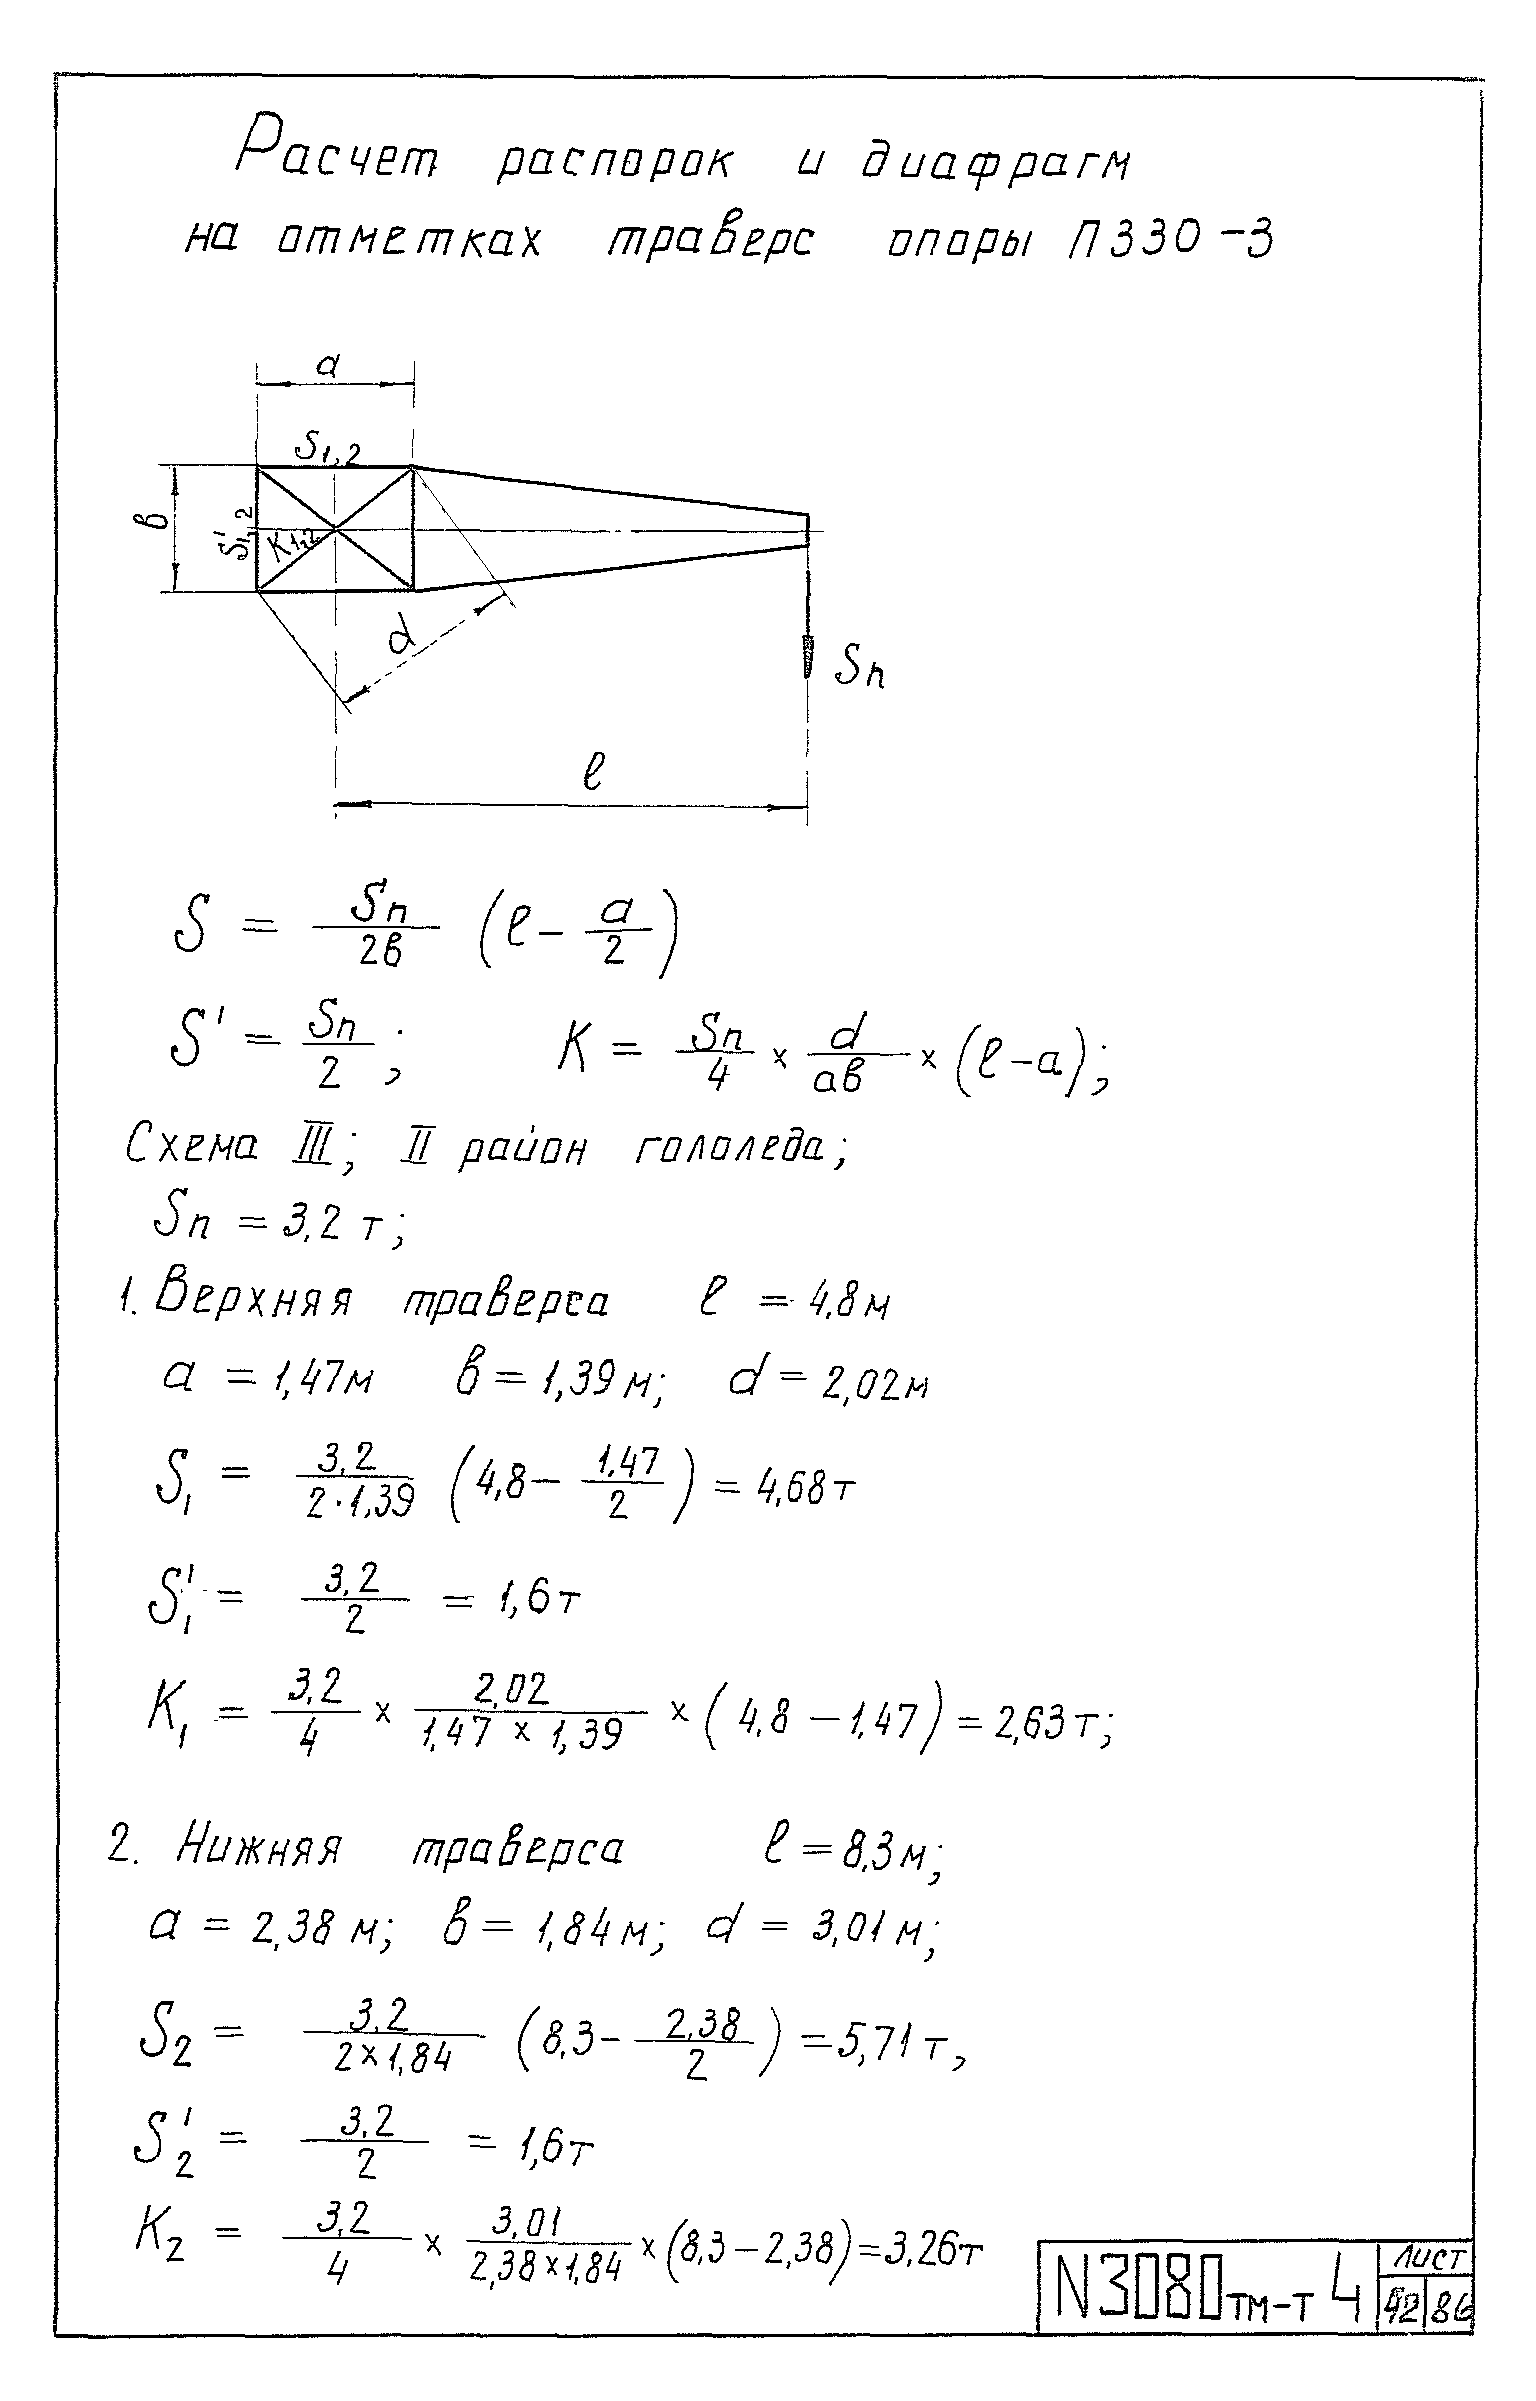 Расчет распорок и диафрагм
на отметках траверс опоры П330-3
a
S1,2
в
S'1,2
К1,2
d
Sп
ℓ
S = Sп/2в (ℓ - a/2)
S' = Sп/2; К = Sп/4 × d/aв × (ℓ-a);
Схема III; II район гололеда;
Sп = 3,2 т;
1. Верхняя траверса ℓ = 4,8м
a = 1,47м в = 1,39м; d = 2,02м
S1 = 3,2/2·1,39 (4,8 - 1,47/2) = 4,68т
S'1 = 3,2/2 = 1,6т
К1 = 3,2/4 × 2,02/1,47 × 1,39 × (4,8 - 1,47) = 2,63т;
2. Нижняя траверса ℓ = 8,3м;
a = 2,38 м; в = 1,84м; d = 3,01м;
S2 = 3,2/2×1,84 (8,3 - 2,38/2) = 5,71т,
S'2 = 3,2/2 = 1,6т
К2 = 3,2/4 × 3,01/2,38×1,84 × (8,3-2,38) = 3,26т
N3080тм-т4
Лист
42 86